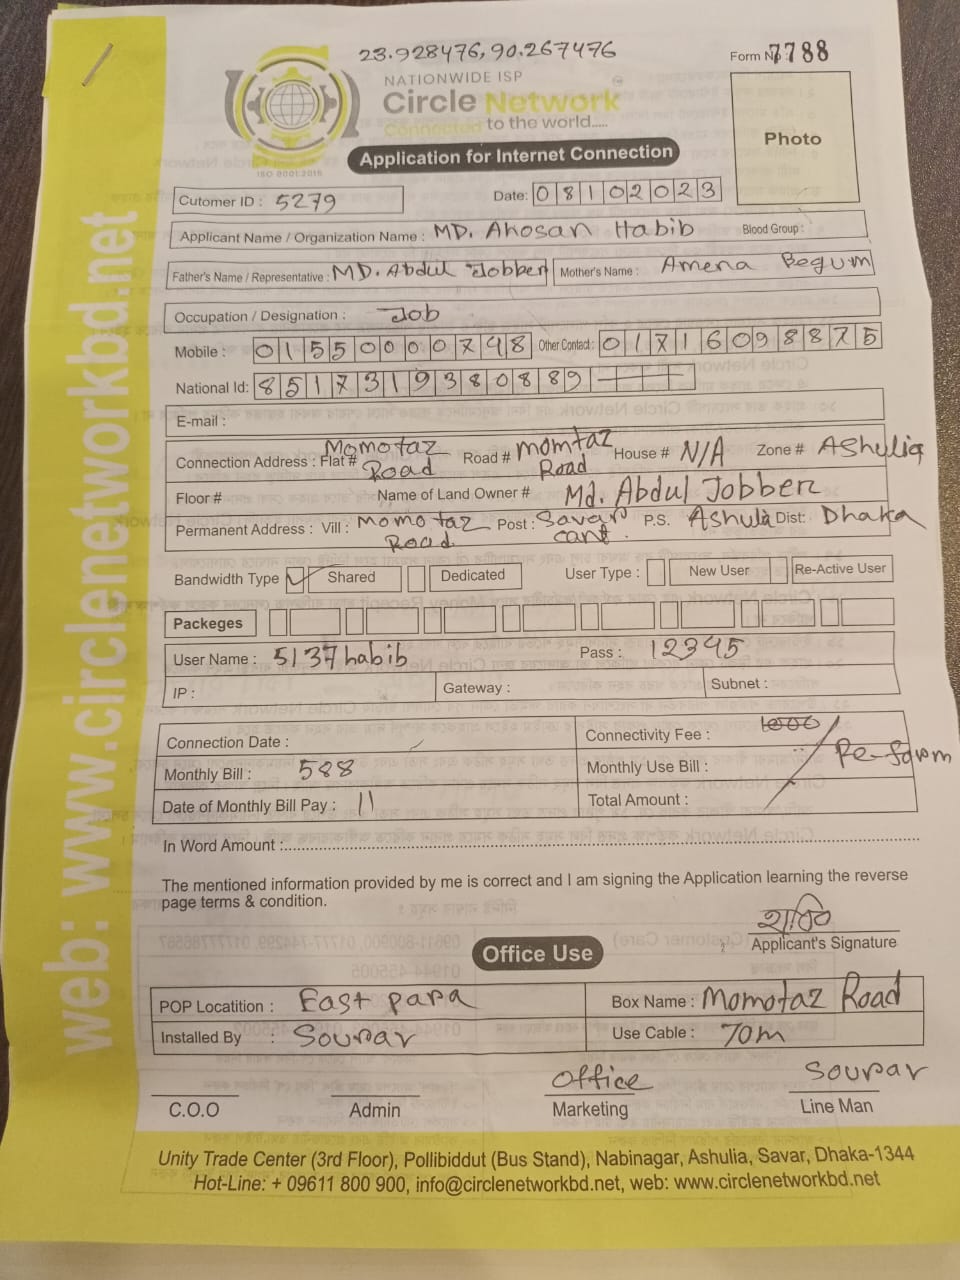 23.928476, 90.267476
Form No 7788
NATIONWIDE ISP
Circle Network
Connected to the world.....
ISO 9001:2015
Photo
Application for Internet Connection
Cutomer ID : 5279
Date: 08102023
Applicant Name / Organization Name : MD. Ahosan Habib Blood Group :
Father's Name / Representative : MD. Abdul Jobber Mother's Name : Amena Begum
Occupation / Designation : Job
Mobile : 01550000748 Other Contact : 01716098875
National Id: 8517319380889
E-mail :
Connection Address : Flat # Momotaz Road Road # momtaz Road House # N/A Zone # AShulia
Floor # Name of Land Owner # Md. Abdul Jobber
Permanent Address : Vill : Momotaz Road. Post : Savar cant. P.S. Ashula Dist: Dhaka
Bandwidth Type Shared Dedicated User Type : New User Re-Active User
Packeges
User Name : 5137habib Pass : 12345
IP : Gateway : Subnet :
Connection Date : Connectivity Fee : 1000
Re-form
Monthly Bill : 588 Monthly Use Bill :
Date of Monthly Bill Pay : 11 Total Amount :
In Word Amount :
The mentioned information provided by me is correct and I am signing the Application learning the reverse
page terms & condition.
হাবিব
Applicant's Signature
Office Use
POP Locatition : East para Box Name : Momotaz Road
Installed By : Sourav Use Cable : 70m
Office Sourav
C.O.O Admin Marketing Line Man
Unity Trade Center (3rd Floor), Pollibiddut (Bus Stand), Nabinagar, Ashulia, Savar, Dhaka-1344
Hot-Line: + 09611 800 900, info@circlenetworkbd.net, web: www.circlenetworkbd.net
web: www.circlenetworkbd.net